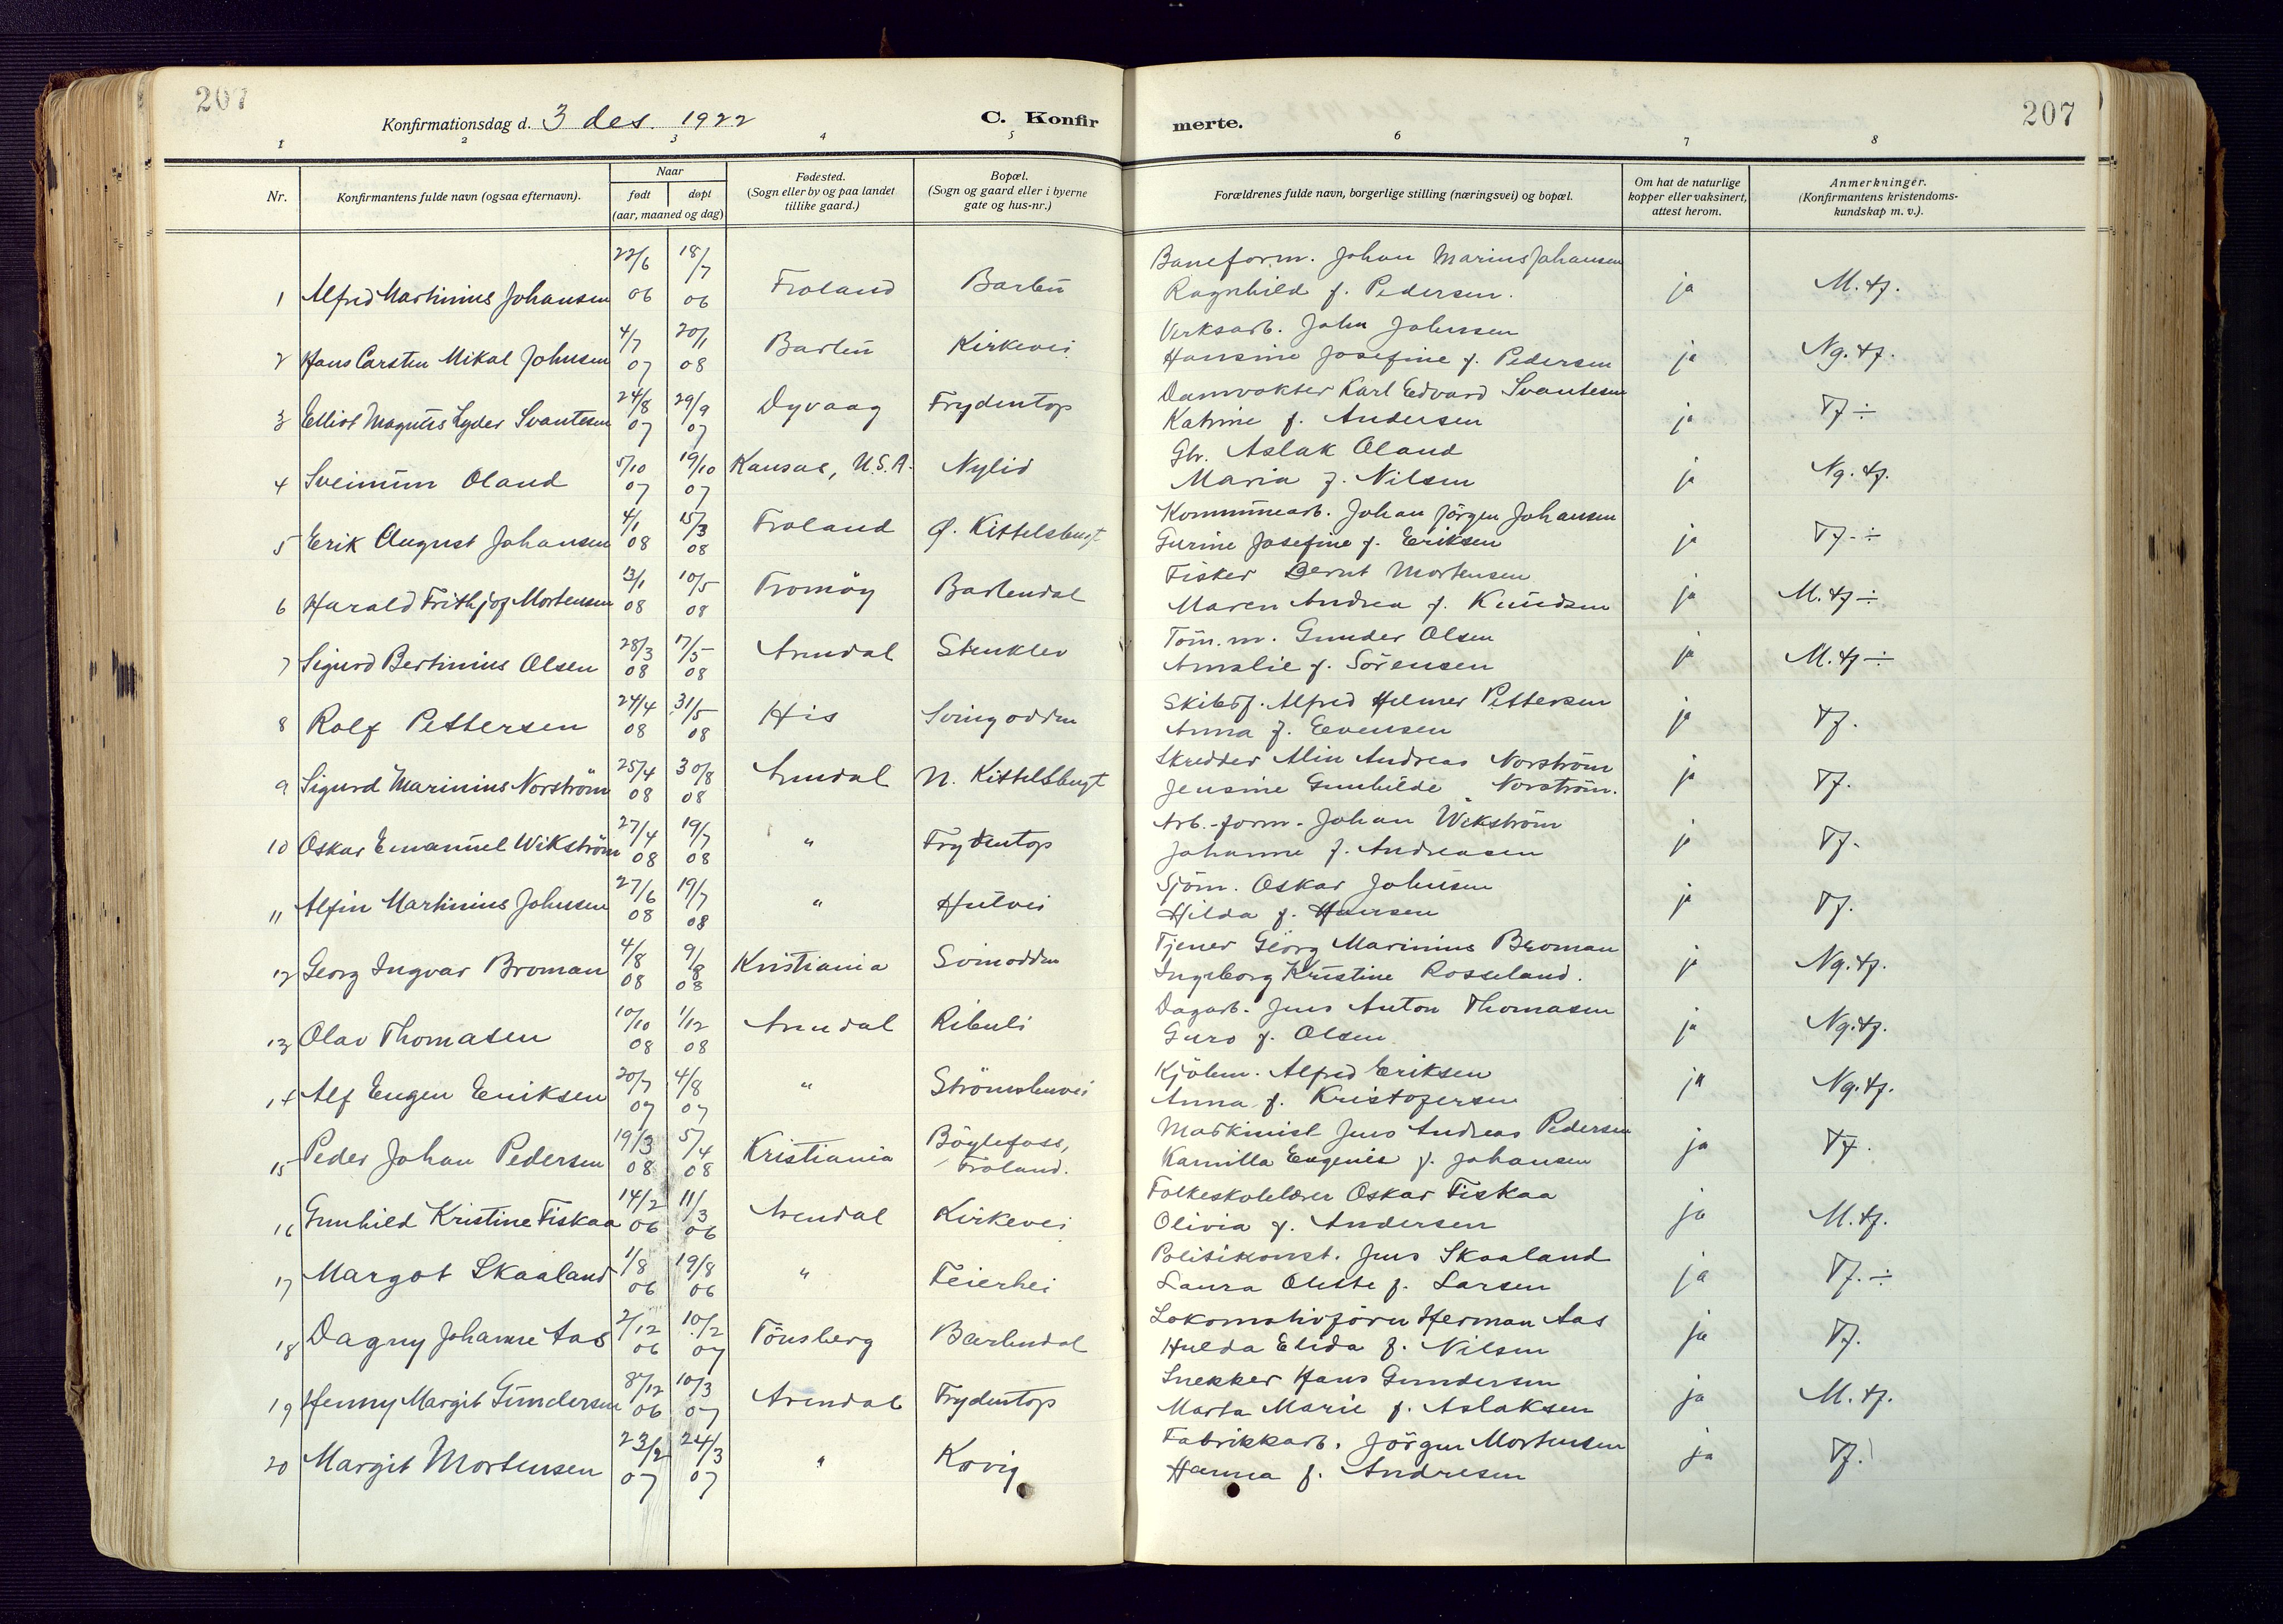 207
207
Konfirmationsdag d. 3 des. 1922
C. Konfirmerte.
1 2 3 4 5 6 7 8
Nr.
Konfirmantens fulde navn (ogsaa efternavn).
Naar
født
døpt
(aar, maaned og dag)
Fødested.
(Sogn eller by og paa landet
tillike gaard.)
Bopæl.
(Sogn og gaard eller i byerne
gate og hus-nr.)
Forældrenes fulde navn, borgerlige stilling (næringsvei) og bopæl.
Om hat de naturlige
kopper eller vaksinert,
attest herom.
Anmerkninger.
(Konfirmantens kristendoms-
kundskap m. v.).
1 Alfred Martinius Johansen 22/6 06 18/7 06 Froland Barbu Baneform. Johan Marius Johansen
Ragnhild f. Pedersen. ja M. tf.
2 Hans Carsten Mikal Johnsen 4/7 07 20/1 08 Barbu Kirkevei Verksarb. John Johnsen
Hansine Josefine f. Pedersen ja Ng. tf.
3 Elliot Magnus Lyder Svantesen 24/8 07 29/9 07 Dyvaag Frydentop Damvokter Karl Edvard Svantesen
Katrine f. Andersen ja Tf ÷
4 Sveinum Oland 5/10 07 19/10 07 Kansas, U.S.A. Nylid Gbr. Aslak Oland
Maria f. Nilsen ja Ng. tf.
5 Erik August Johansen 4/1 08 15/3 08 Froland Ø. Kittelsbugt Kommunearb. Johan Jörgen Johansen
Gurine Josefine f. Eriksen ja Tf. ÷
6 Harald Frithjof Mortensen 13/1 08 10/5 08 Tromöy Barbudal Fisker Bernt Mortensen
Maren Andrea f. Knudsen ja M. tf ÷
7 Sigurd Bertinius Olsen 28/3 08 7/5 08 Arendal Stenklev Töm. m. Gunder Olsen
Amalie f. Sörensen ja M. tf ÷
8 Rolf Pettersen 24/4 08 31/5 08 His Svingodden Skibsf. Alfred Helmer Pettersen
Anna f. Evensen ja Tf.
9 Sigurd Marinius Norström 25/4 08 30/8 08 Arendal N. Kittelsbugt Skredder Alin Andreas Norström
Jensine Gunhilde Norström. ja Tf.
10 Oskar Emanuel Wikström 27/4 08 19/7 08 " Frydentop Arb.-form. Johan Wikström
Johanne f. Andreasen ja Tf.
11 Alfin Martinius Johnsen 27/6 08 19/7 08 " Hutvei Sjöm. Oskar Johnsen
Hilda f. Hansen ja Tf.
12 Georg Ingvar Broman 4/8 08 9/8 08 Kristiania Svinodden Tjener Georg Marinius Broman
Ingeborg Kristine Rosseland. ja Ng. tf.
13 Olav Thomasen 10/10 08 1/12 08 Arendal Ribuli Dagarb. Jens Anton Thomasen
Guro f. Olsen ja Ng. tf.
14 Alf Eugen Eriksen 20/7 07 4/8 07 " Strömsbuvei Kjöbm. Alfred Eriksen
Anna f. Kristofersen ja Ng. tf.
15 Peder Johan Pedersen 19/3 08 5/4 08 Kristiania Böylefoss,
Froland. Maskinist Jens Andreas Pedersen
Kamilla Eugenie f. Johansen ja Tf.
16 Gunhild Kristine Fiskaa 14/2 06 11/3 06 Arendal Kirkevei Folkeskolelærer Oskar Fiskaa
Olivia f. Andersen ja M. tf.
17 Margot Skaaland 1/8 06 19/8 06 " Feierhei Politikonst. Jens Skaaland
Laura Oliste f. Larsen ja Tf. ÷
18 Dagny Johanne Aas 2/12 06 10/2 07 Tönsberg Barbudal Lokomotivförer Herman Aas
Hulda Elida f. Nilsen ja Tf.
19 Henny Margit Gundersen 8/12 06 10/3 07 Arendal Frydentop Snekker Hans Gundersen
Marta Marie f. Aslaksen ja M. tf.
20 Margit Mortensen 23/2 07 24/3 07 " Kovig Fabrikkarb. Jörgen Mortensen
Hanna f. Andresen ja Tf.